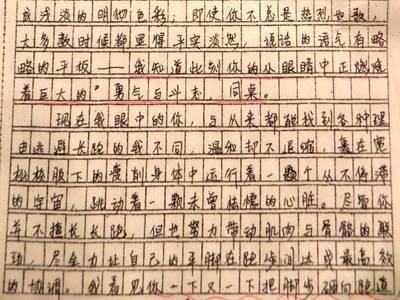 或浅淡的明彻色彩；即使你不总是热烈也歌，
大多数时候都显得平实淡然，说话的语气有略
略的平板——我知道此刻你的从眼睛中正燃烧
着巨大的"勇气与斗志，同桌。
现在我眼中的你，与从来都能找到各种理
由逃避长跑的我不同，温和却不退缩，裹在宽
松校服下的瘦削身体中运行着一颗个从不停滞
的宇宙，跳动着一颗未曾怯懦的心脏。尽管你
并不擅长长跑，但也努力带动肌肉与骨骼的联
动，尽全力让自己的平脚在跑步间达成最高效
的协调。我看见你一下又一下把脚步砸向跑道